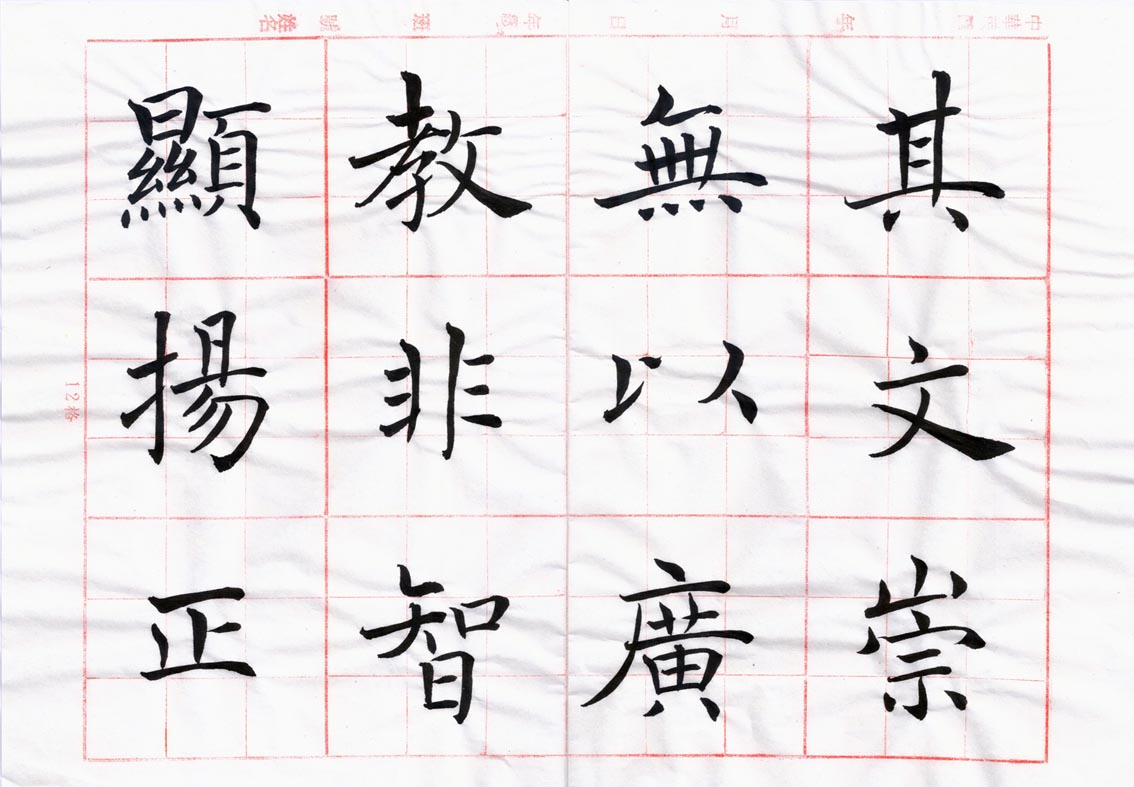 中華民國 年 月 日 年級 班 號 姓名
顯揚正
教非智
無以廣
其文崇
12格